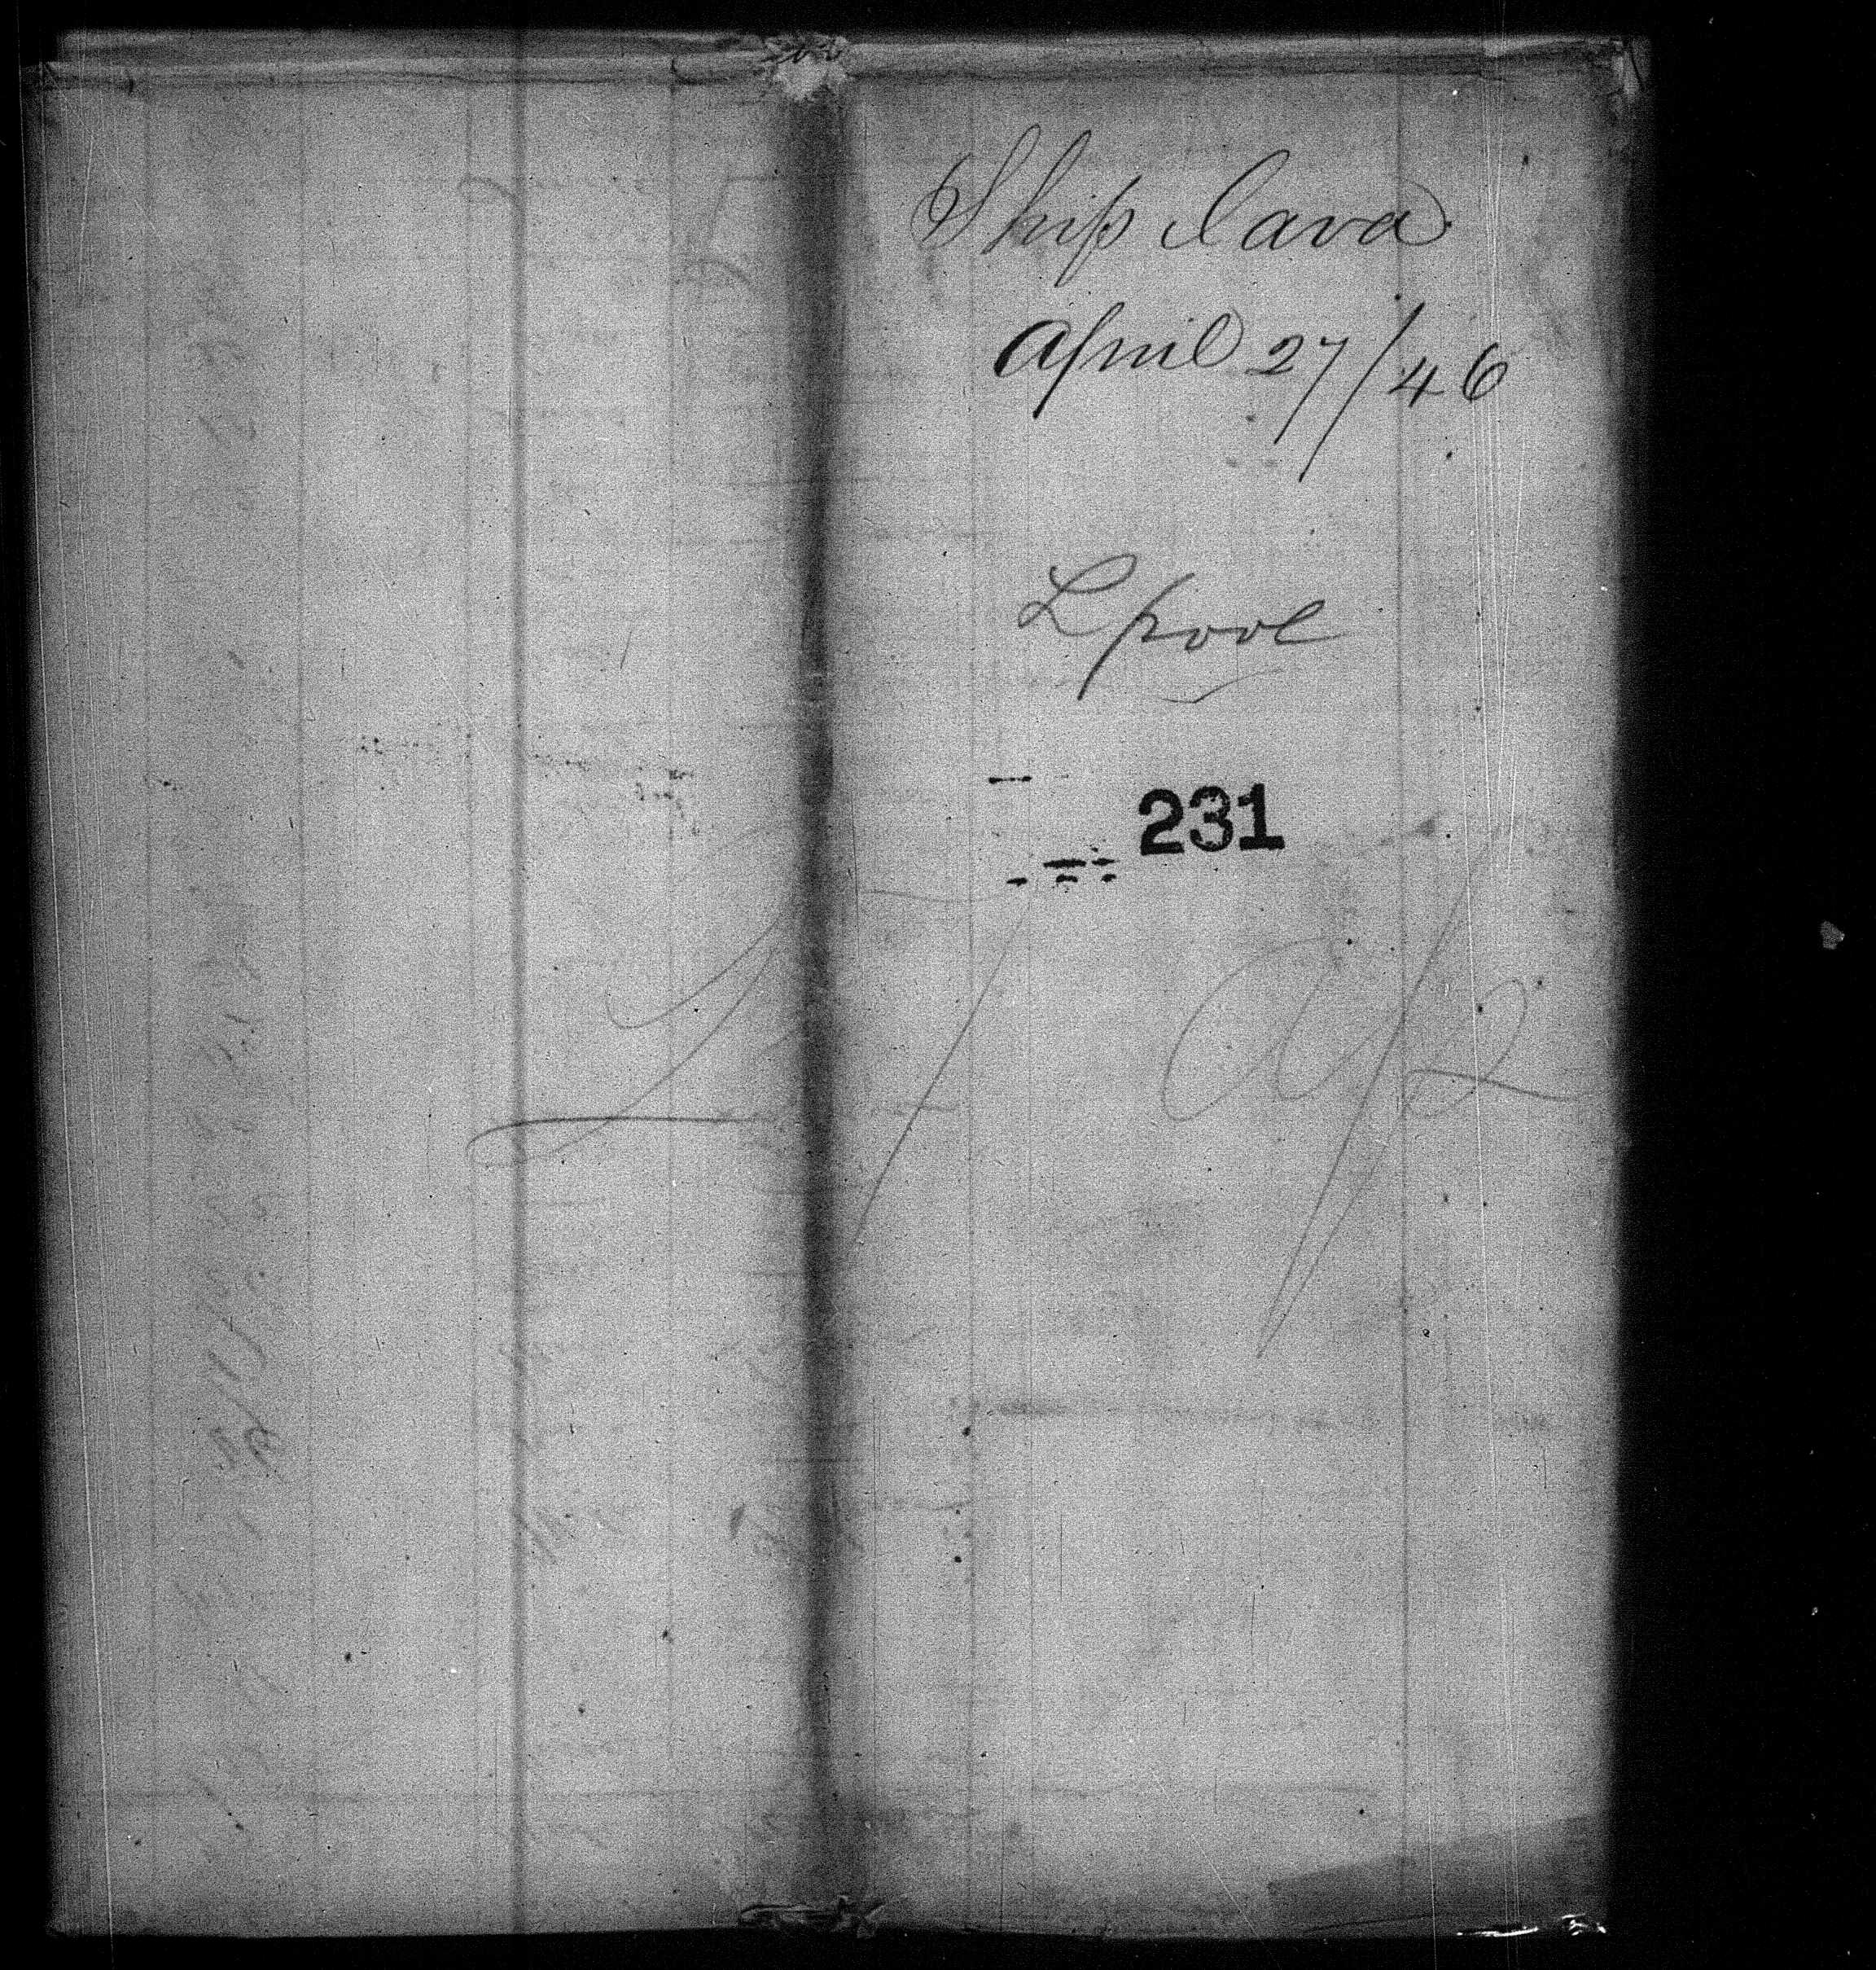 Ship Java
April 27/46
Lpool
231